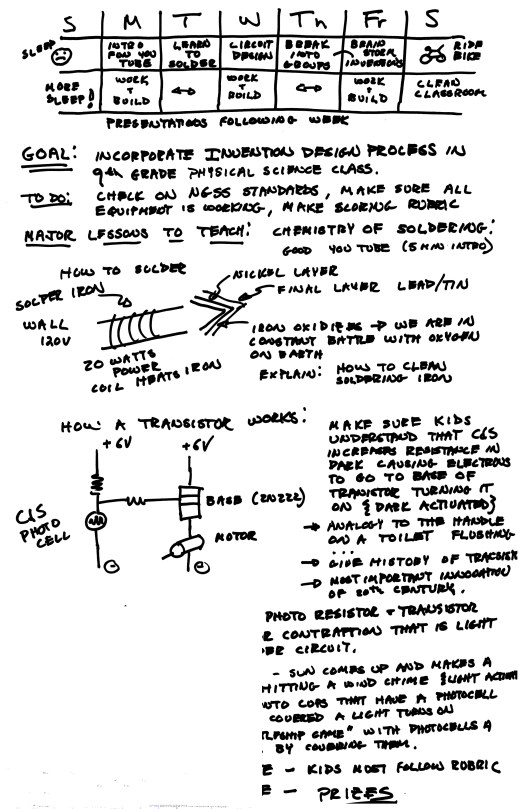 S M T W Th Fr S
SLEEP INTRO FUN YOU TUBE LEARN TO SOLDER CIRCUIT DESIGN BREAK INTO GROUPS BRAIN STORM INVENTIONS RIDE BIKE
MORE SLEEP! WORK + BUILD ↔ WORK + BUILD ↔ WORK + BUILD CLEAN CLASSROOM
PRESENTATIONS FOLLOWING WEEK
GOAL: INCORPORATE INVENTION DESIGN PROCESS IN
9th GRADE PHYSICAL SCIENCE CLASS.
TO DO: CHECK ON NGSS STANDARDS, MAKE SURE ALL
EQUIPMENT IS WORKING, MAKE SCORING RUBRIC
MAJOR LESSONS TO TEACH: CHEMISTRY OF SOLDERING:
GOOD YOU TUBE (5 MIN INTRO)
HOW TO SOLDER
SOLDER IRON
WALL
120V
20 WATTS
POWER
COIL HEATS IRON
NICKEL LAYER
FINAL LAYER LEAD/TIN
IRON OXIDIZES → WE ARE IN
CONSTANT BATTLE WITH OXYGEN
ON EARTH
EXPLAIN: HOW TO CLEAN
SOLDERING IRON
HOW A TRANSISTOR WORKS:
+6V +6V
BASE (2N222)
CdS
PHOTO
CELL
MOTOR
MAKE SURE KIDS
UNDERSTAND THAT CdS
INCREASES RESISTANCE IN
DARK CAUSING ELECTRONS
TO GO TO BASE OF
TRANSISTOR TURNING IT
ON {DARK ACTIVATED}
→ ANALOGY TO THE HANDLE
ON A TOILET FLUSHING
...
→ GIVE HISTORY OF TRANSIS
→ MOST IMPORTANT INNOVATION
OF 20th CENTURY.
PHOTO RESISTOR + TRANSISTOR
R CONTRAPTION THAT IS LIGHT
CIRCUIT.
- SUN COMES UP AND MAKES A
HITTING A WIND CHIME {LIGHT ACTIV
CUPS THAT HAVE A PHOTOCELL
COVERED A LIGHT TURNS ON
GAME" WITH PHOTOCELLS
BY COVERING THEM.
E - KIDS MUST FOLLOW RUBRIC
E - PRIZES